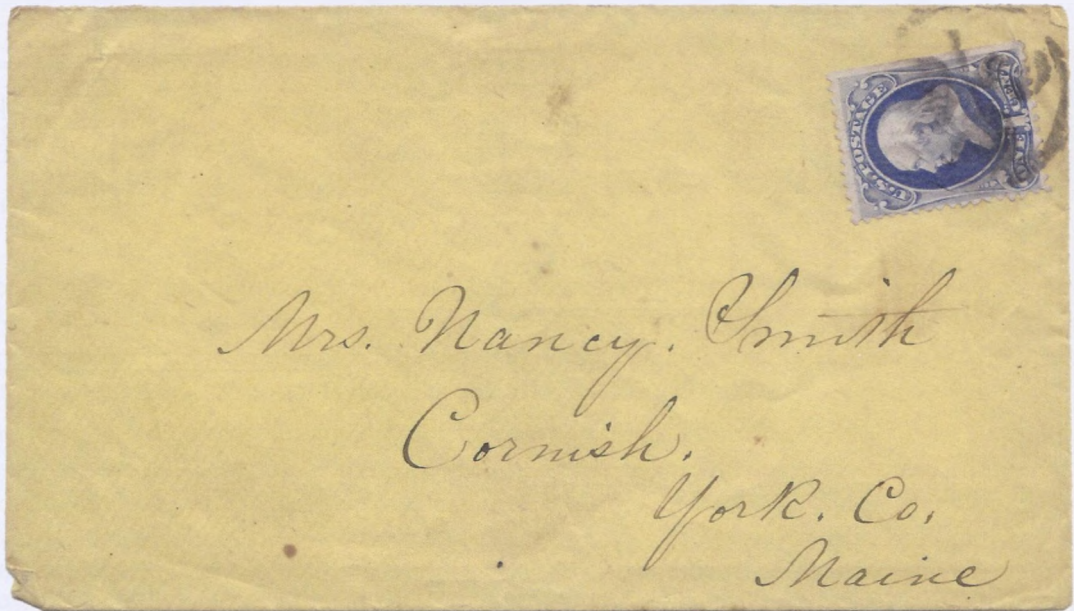 U.S. POSTAGE
Mrs. Nancy. Smith
Cornish.
York. Co.
Maine